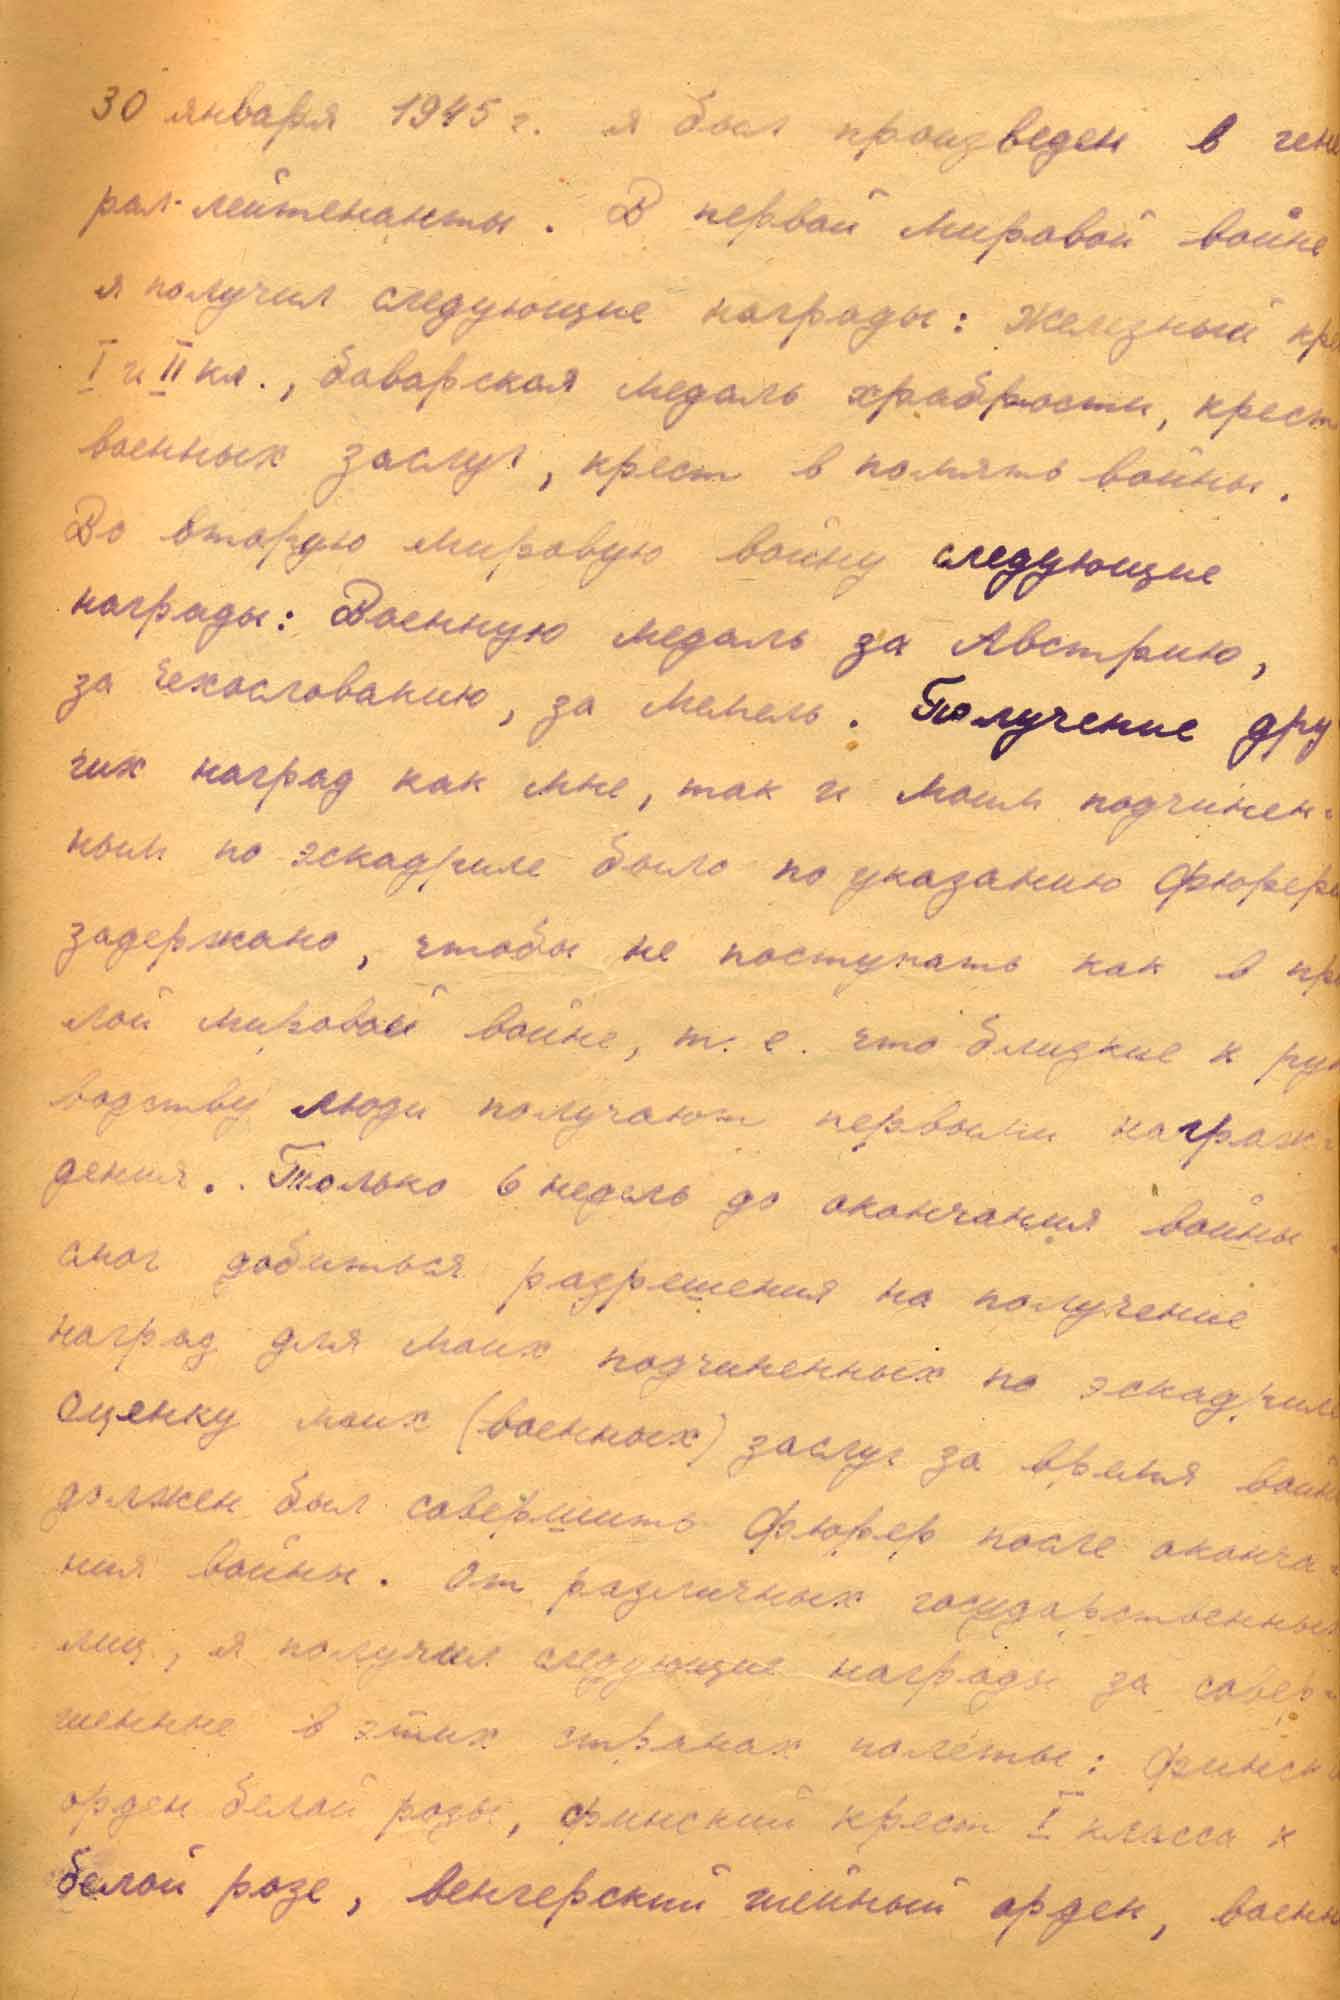 30 января 1945 г. я был произведен в гене
рал-лейтенанты. В первой мировой войне
я получил следующие награды: Железный кре
I и II кл., баварская медаль храбрости, крест
военных заслуг, крест в память войны.
Во вторую мировую войну следующие
награды: Военную медаль за Австрию,
за Чехословакию, за Мемель. Получение дру
гих наград как мне, так и моим подчинен-
ным по эскадриле было по указанию Фюрера
задержано, чтобы не поступать как в пр
лой мировой войне, т.е. что близкие к рук
водству люди получают первыми награж-
дения. Только 6 недель до окончания войны
смог добиться разрешения на получение
наград для моих подчиненных по эскадриле
Оценку моих (военных) заслуг за время войн
должен был совершить Фюрер после оконча-
ния войны. От различных государственных
лиц, я получил следующие награды за совер-
шенные в этих странах полеты: финск
орден белой розы, финский крест I класса к
белой розе, венгерский шейный орден, военн